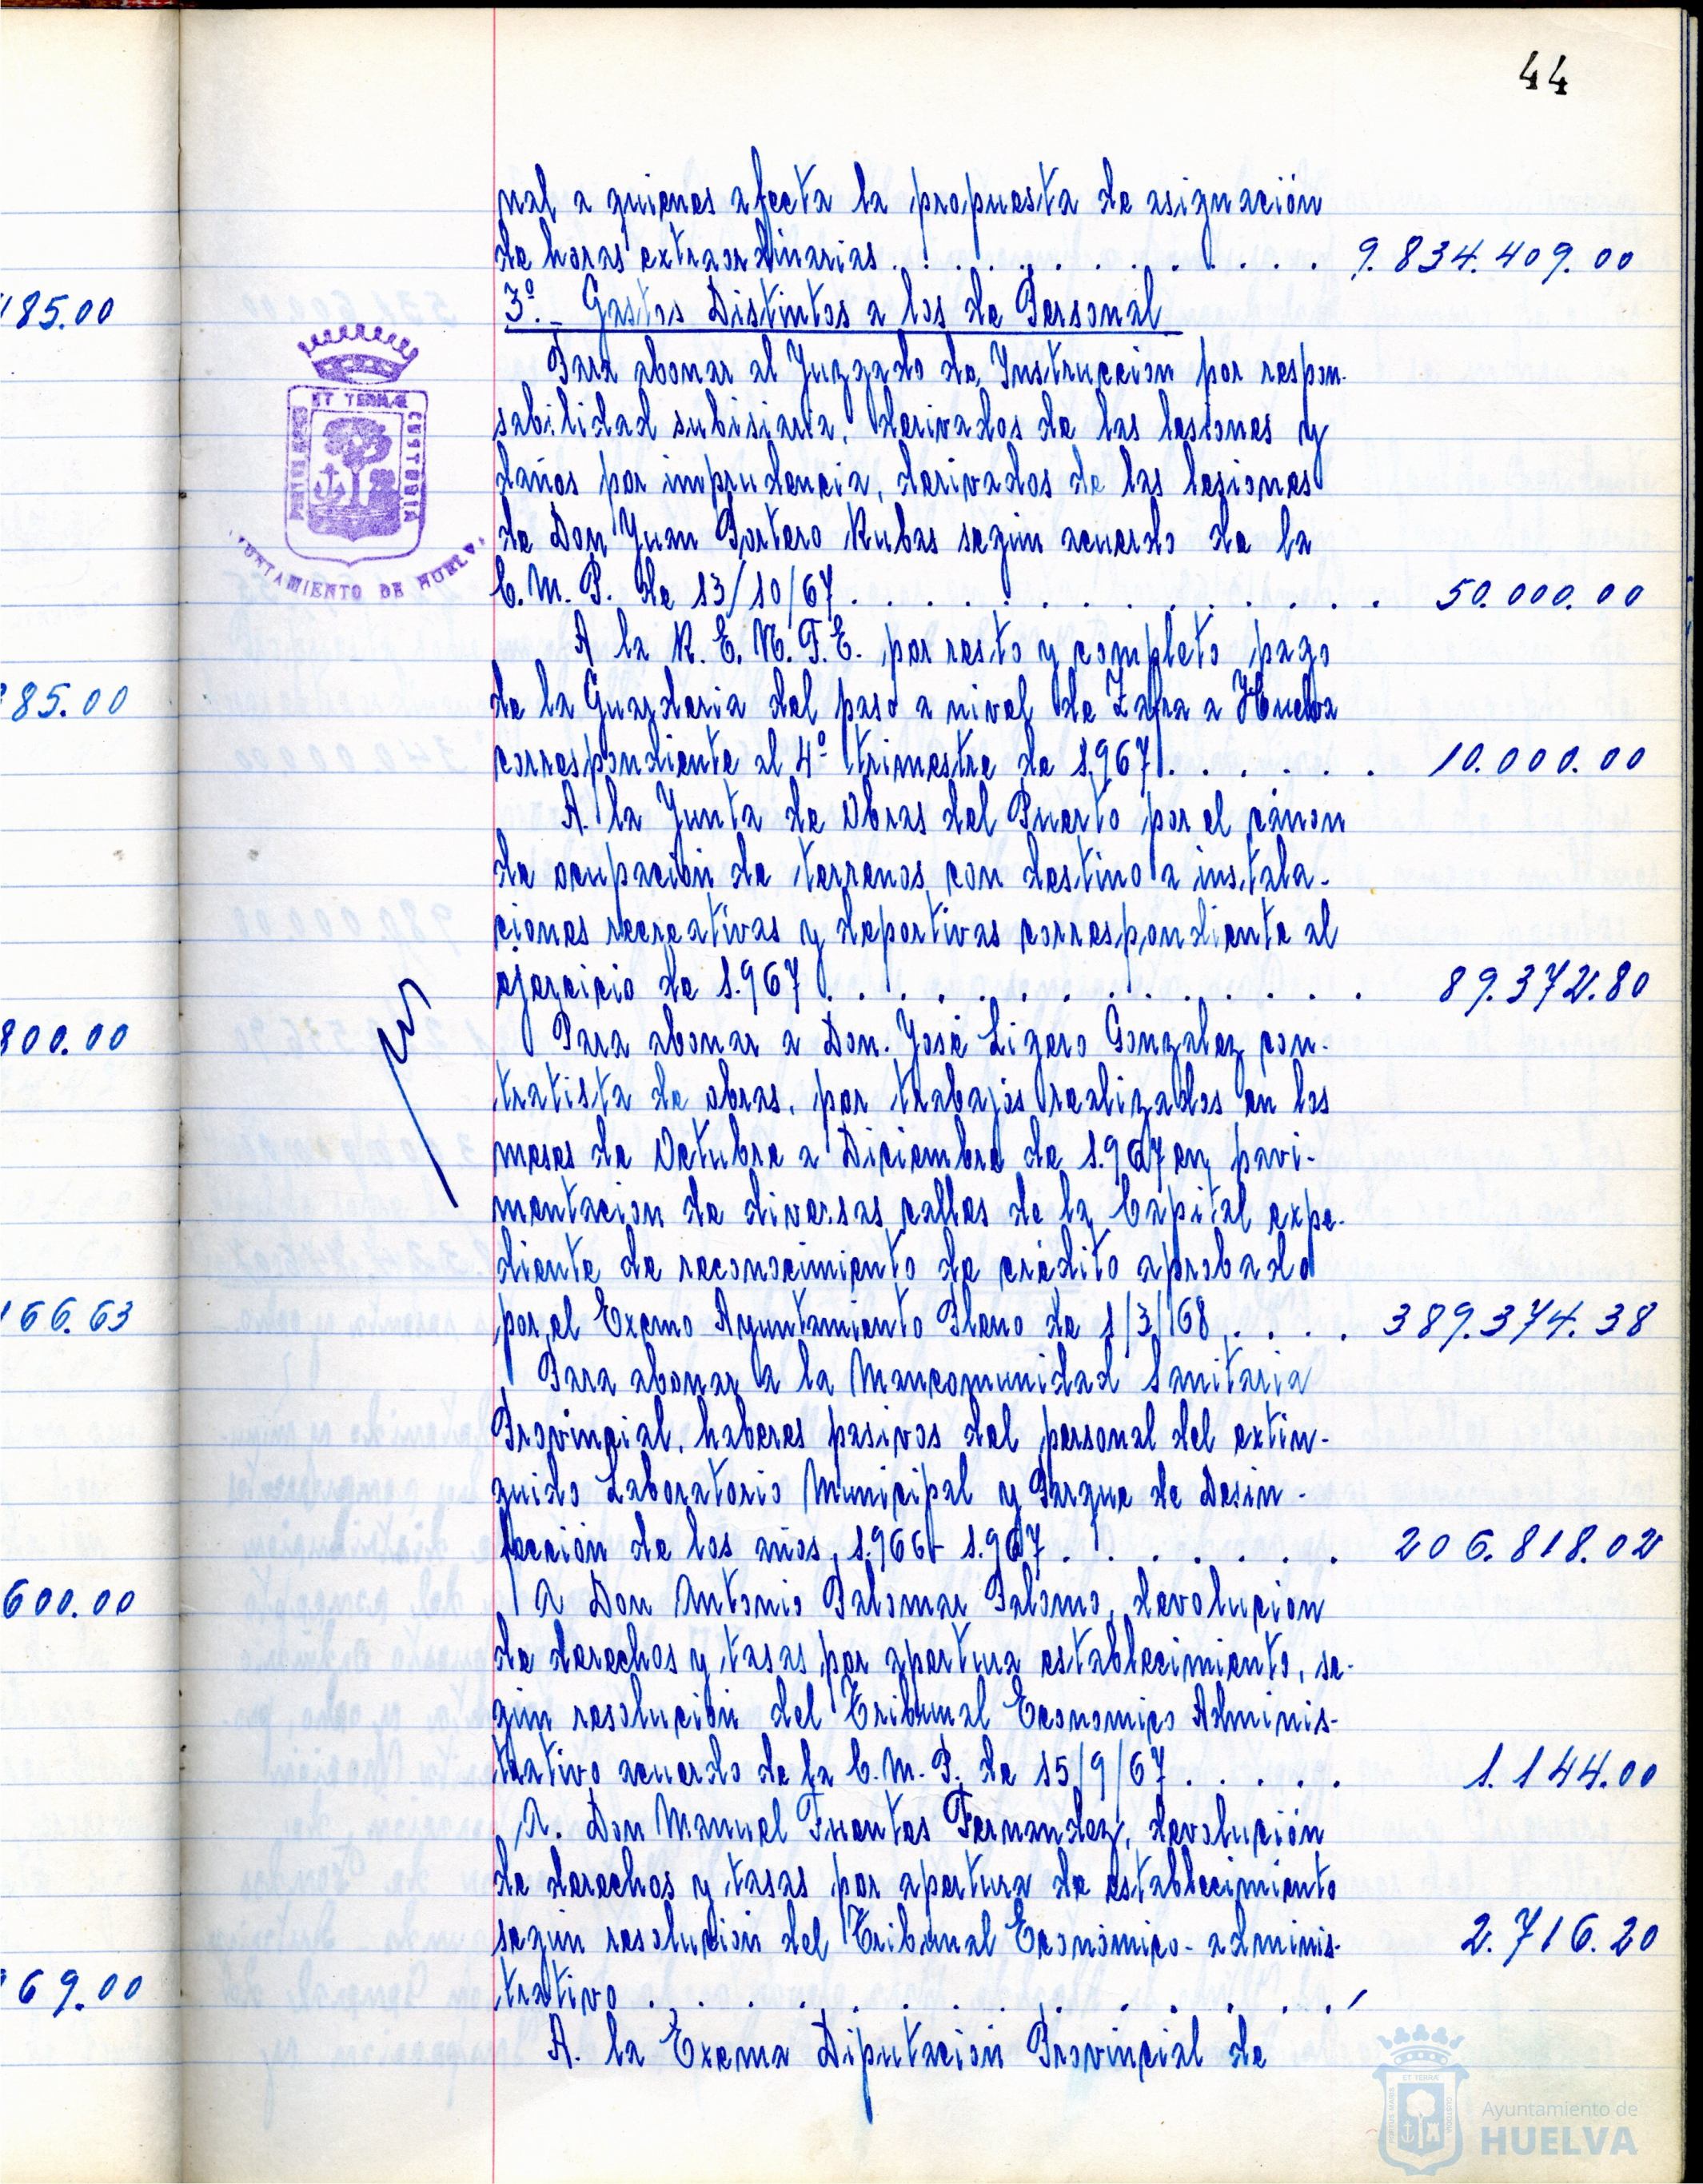 44
nal a quienes afecta la propuesta de asignación
de horas extraordinarias . . . . . . . . . . . 9.834.409.00
3º.- Gastos Distintos a los de Personal
Para abonar al Juzgado de Instruccion por respon-
sabilidad subisiaria, derivados de las lesiones y
daños por imprudencia, derivados de las lesiones
de Don Juan Portero Rubas según acuerdo de la
C.M.P. de 13/10/67 . . . . . . . . . . . . 50.000.00
A la R.E.N.F.E. por resto y completo pago
de la Guarderia del paso a nivel de Zafra a Huelva
correspondiente al 4º trimestre de 1.967 . . . . . . 10.000.00
A. la Junta de Obras del Puerto por el cánon
de ocupación de terrenos con destino a instala-
ciones recreativas y deportivas correspondiente al
ejercicio de 1.967 . . . . . . . . . . . . 89.372.80
Para abonar a Don. José Ligero Gonzalez con-
tratista de obras, por trabajos realizados en los
meses de Octubre a Diciembre de 1.967 en pavi-
mentacion de diversas calles de la Capital expe-
diente de reconocimiento de crédito aprobado
por el Excmo Ayuntamiento Pleno de 1/3/68 . . . . 389.374.38
Para abonar a la Mancomunidad Sanitaria
Provincial, haberes pasivos del personal del extin-
guido Laboratorio Municipal y Parque de Desin-
fección de los años, 1.966 1.967 . . . . . . . 206.818.02
A Don Antonio Palomar Palomo, devolución
de derechos y tasas por apertura establecimiento, se-
gún resolución del Tribunal Economico Adminis-
trativo acuerdo de la C.M.P. de 15/9/67 . . . . . 1.144.00
A. Don Manuel Fuentes Fernandez, devolución
de derechos y tasas por apertura de establecimiento
según resolución del Tribunal Económico-adminis- 2.716.20
trativo . . . . . . . . . . . . . .
A. la Excma Diputación Provincial de
185.00
85.00
800.00
166.63
600.00
69.00
ET TERRÆ CUSTODIA
AYUNTAMIENTO DE HUELVA
Ayuntamiento de
HUELVA